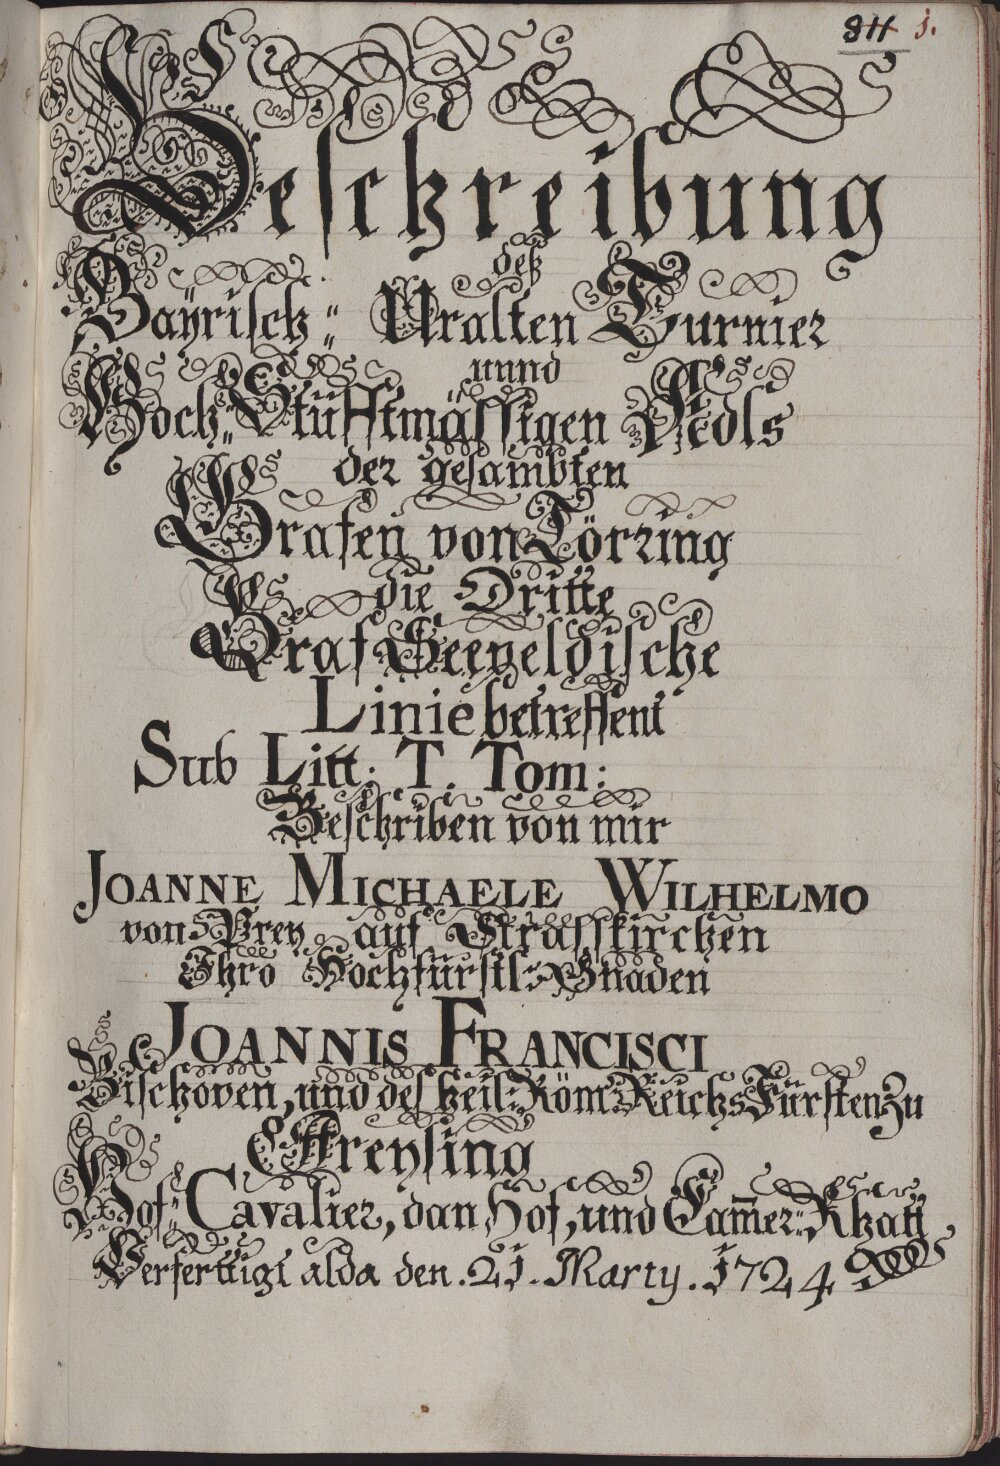 811 1.
Beschreibung
deß
Bayrisch: Uralten Turnier
unnd
Hoch: Stüfftmässigen Adls
der gesambten
Grafen von Törring
die Dritte
Graf Seeveldische
Linie betreffent
Sub Litt: T. Tom:
Beschriben von mir
JOANNE MICHAELE WILHELMO
von Prey auf Strasskirchen
Ihro Hochfürstl: Gnaden
JOANNIS FRANCISCI
Bischoven, und des heil: Röm: Reichs Fürsten Zu
Freysing
Hof: Cavalier, dan Hof, und Cam̅er: Rhatt
Verferttigt alda den .21. Marty. 1724